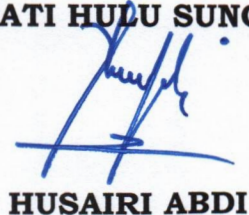 ATI HULU SUNG
HUSAIRI ABDI